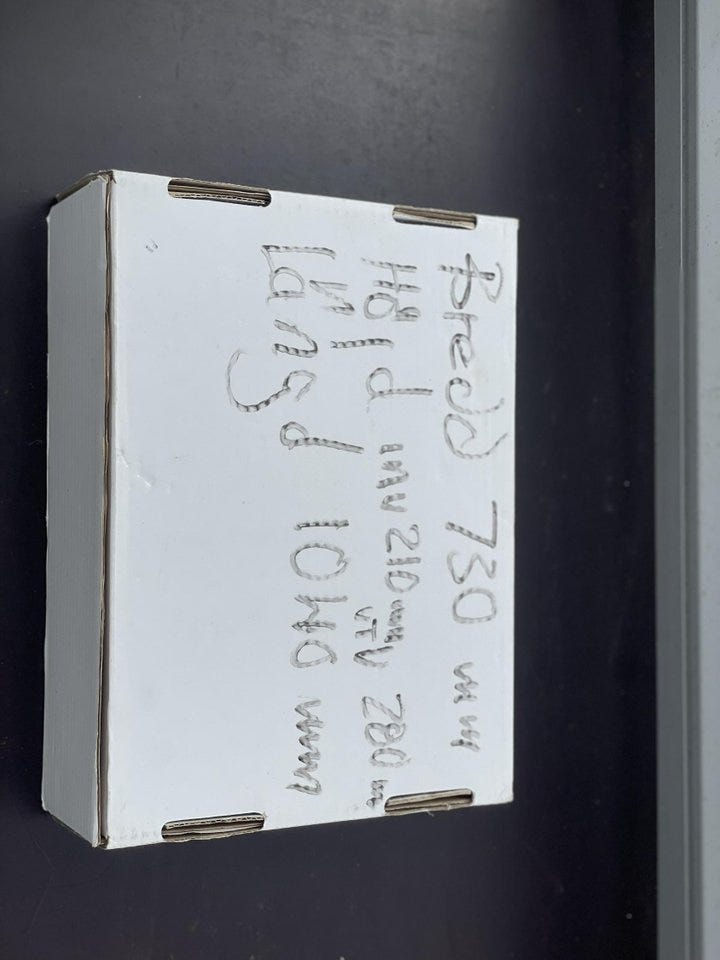 Bredd 730 mm
Höjd inv 210 mm UTV 280 m
Längd 1040 mm